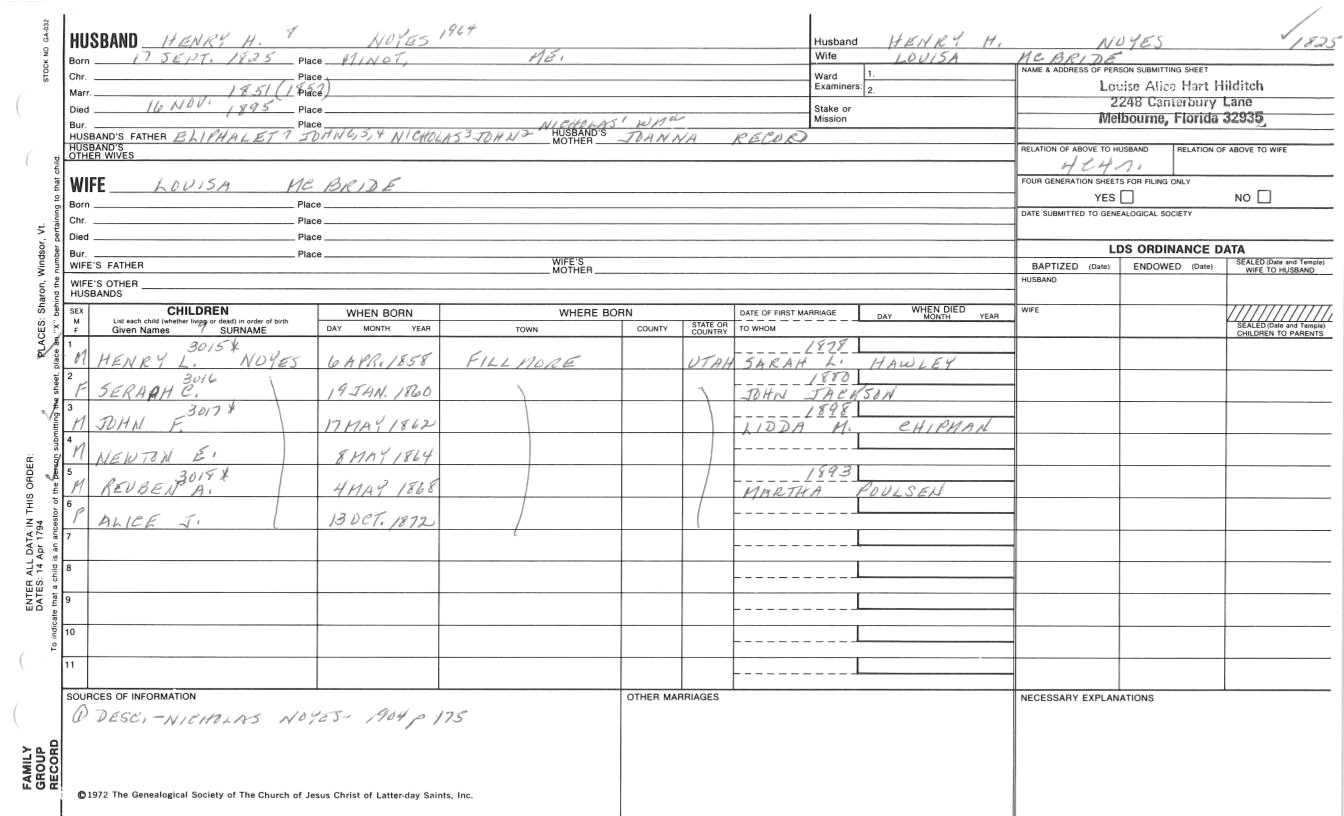 STOCK NO GA-032
HUSBAND HENRY H. 8 NOYES 1964
Born 17 SEPT. 1825 Place MINOT, ME.
Chr. Place
Marr. 1851 (1857) Place
Died 16 NOV. 1895 Place
Bur. Place
HUSBAND'S FATHER ELIPHALET 7 JOHN 6,5,4 NICHOLAS 3 JOHN 2 NICHOLAS 1 WMa HUSBAND'S MOTHER JOANNA RECORD
HUSBAND'S OTHER WIVES
WIFE LOUISA MC BRIDE
Born Place
Chr. Place
Died Place
Bur. Place
WIFE'S FATHER WIFE'S MOTHER
WIFE'S OTHER HUSBANDS
Husband HENRY H. NOYES 1825
Wife LOUISA MC BRIDE
Ward Examiners: 1. 2.
Stake or Mission
NAME & ADDRESS OF PERSON SUBMITTING SHEET
Louise Alice Hart Hilditch
2248 Canterbury Lane
Melbourne, Florida 32935
RELATION OF ABOVE TO HUSBAND RELATION OF ABOVE TO WIFE
FOUR GENERATION SHEETS FOR FILING ONLY
YES NO
DATE SUBMITTED TO GENEALOGICAL SOCIETY
LDS ORDINANCE DATA
BAPTIZED (Date) ENDOWED (Date) SEALED (Date and Temple) WIFE TO HUSBAND
HUSBAND
WIFE
SEALED (Date and Temple) CHILDREN TO PARENTS
SEX M F
CHILDREN
List each child (whether living or dead) in order of birth
Given Names 9 SURNAME
WHEN BORN
DAY MONTH YEAR
WHERE BORN
TOWN COUNTY STATE OR COUNTRY
DATE OF FIRST MARRIAGE
TO WHOM
WHEN DIED
DAY MONTH YEAR
1 M 3015* HENRY L. NOYES 6 APR. 1858 FILLMORE UTAH 1878 SARAH L. HAWLEY
2 F 3016 SERAPH C. 19 JAN. 1860 1880 JOHN JACKSON
3 M 3017* JOHN F. 17 MAY 1862 1898 LIDDA M. CHIPMAN
4 M NEWTON E. 8 MAY 1864
5 M 3018* REUBEN A. 4 MAY 1868 1893 MARTHA POULSEN
6 F ALICE J. 13 OCT. 1872
7
8
9
10
11
SOURCES OF INFORMATION
① DESC.-NICHOLAS NOYES- 1904 p 175
OTHER MARRIAGES
NECESSARY EXPLANATIONS
©1972 The Genealogical Society of The Church of Jesus Christ of Latter-day Saints, Inc.
FAMILY GROUP RECORD
ENTER ALL DATA IN THIS ORDER:
DATES: 14 Apr 1794
PLACES: Sharon, Windsor, Vt.
To indicate that a child is an ancestor of the person submitting the sheet, place an "X" behind the number pertaining to that child.